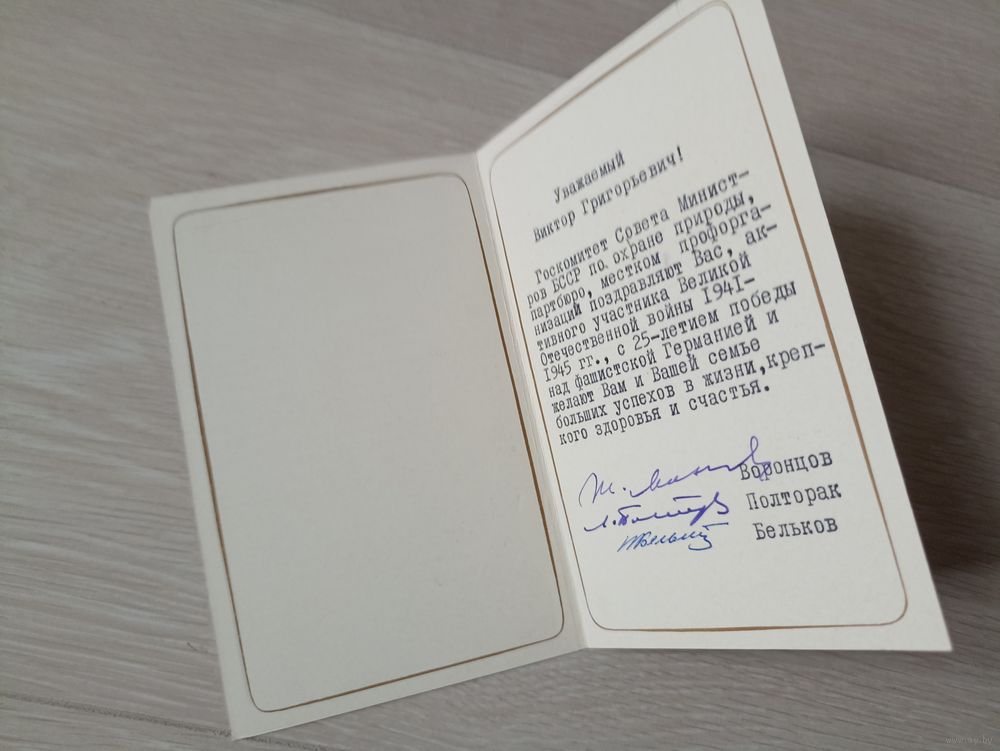 Уважаемый
Виктор Григорьевич!
Госкомитет Совета Минист-
ров БССР по охране природы,
партбюро, местком профорга-
низаций поздравляют Вас, ак-
тивного участника Великой
Отечественной войны 1941-
1945 гг., с 25-летием победы
над фашистской Германией и
желают Вам и Вашей семье
больших успехов в жизни,креп-
кого здоровья и счастья.
Воронцов
Полторак
Бельков